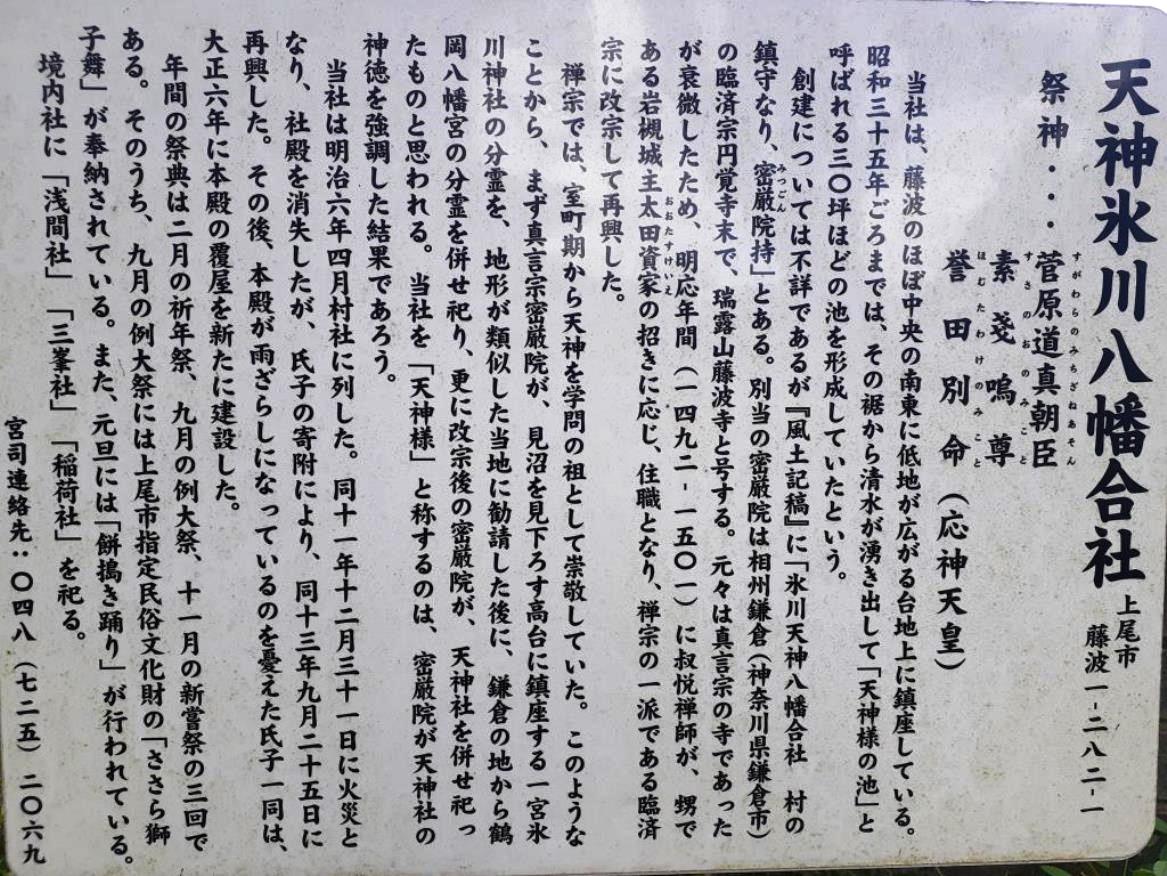 天神氷川八幡合社
上尾市
藤波一-二八二-一
祭神・・・菅原道真朝臣
すがわらのみちざねあそん
素戔嗚尊
すさのおのみこと
誉田別命(応神天皇)
ほむたわけのみこと
当社は、藤波のほぼ中央の南東に低地が広がる台地上に鎮座している。
昭和三十五年ごろまでは、その裾から清水が湧き出して「天神様の池」と
呼ばれる三〇坪ほどの池を形成していたという。
創建については不詳であるが『風土記稿』に「氷川天神八幡合社 村の
鎮守なり、密厳院持」とある。別当の密厳院は相州鎌倉(神奈川県鎌倉市)
みつごん
の臨済宗円覚寺末で、瑞露山藤波寺と号する。元々は真言宗の寺であった
が衰微したため、明応年間(一四九二-一五〇一)に叔悦禅師が、甥で
ある岩槻城主太田資家の招きに応じ、住職となり、禅宗の一派である臨済
おおたすけいえ
宗に改宗して再興した。
禅宗では、室町期から天神を学問の祖として崇敬していた。このような
ことから、まず真言宗密厳院が、見沼を見下ろす高台に鎮座する一宮氷
川神社の分霊を、地形が類似した当地に勧請した後に、鎌倉の地から鶴
岡八幡宮の分霊を併せ祀り、更に改宗後の密厳院が、天神社を併せ祀っ
たものと思われる。当社を「天神様」と称するのは、密厳院が天神社の
神徳を強調した結果であろう。
当社は明治六年四月村社に列した。同十一年十二月三十一日に火災と
なり、社殿を消失したが、氏子の寄附により、同十三年九月二十五日に
再興した。その後、本殿が雨ざらしになっているのを憂えた氏子一同は、
大正六年に本殿の覆屋を新たに建設した。
年間の祭典は二月の祈年祭、九月の例大祭、十一月の新嘗祭の三回で
ある。そのうち、九月の例大祭には上尾市指定民俗文化財の「ささら獅
子舞」が奉納されている。また、元旦には「餅搗き踊り」が行われている。
境内社に「浅間社」「三峯社」「稲荷社」を祀る。
宮司連絡先:〇四八(七二五)二〇六九